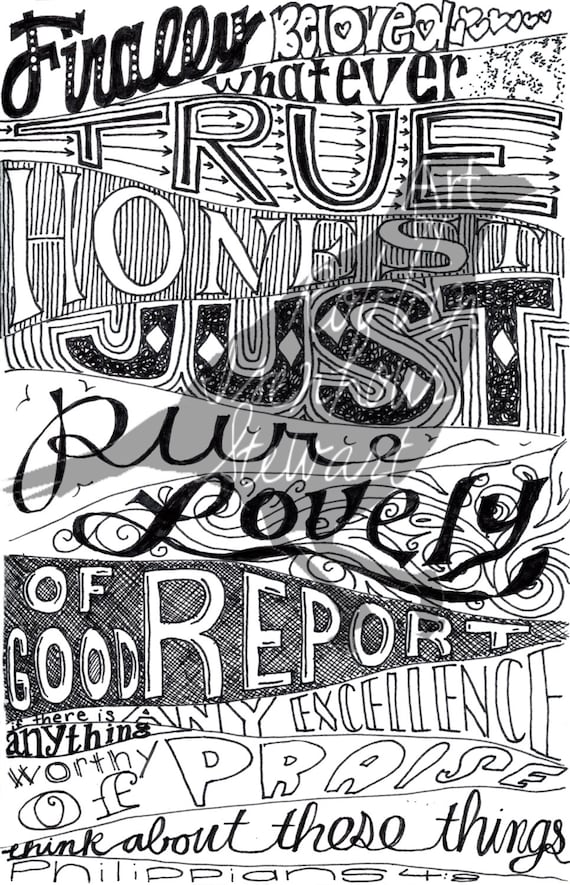 Finally Beloved
whatever is
TRUE
HONEST
JUST
pure
Lovely
OF
GOOD REPORT
if there is ANY EXCELLENCE
anything
worthy
Of PRAISE
think about these things
Philippians 4:8
Art
Stewart